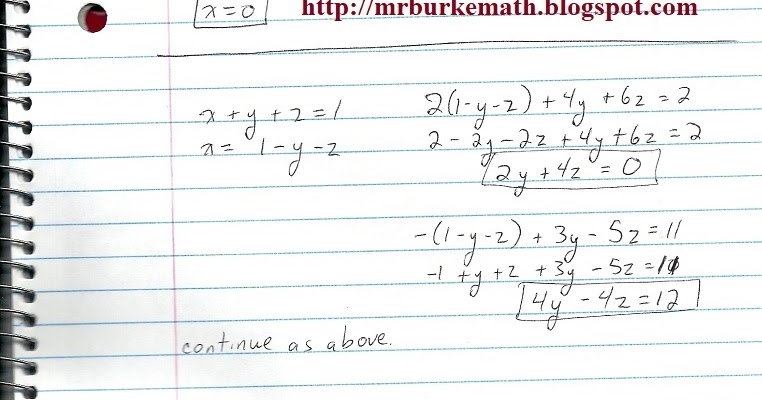 x = 0
http://mrburkemath.blogspot.com
x + y + z = 1
x = 1 - y - z
2(1-y-z) + 4y + 6z = 2
2 - 2y - 2z + 4y + 6z = 2
2y + 4z = 0
-(1-y-z) + 3y - 5z = 11
-1 + y + z + 3y - 5z = 11
4y - 4z = 12
continue as above.